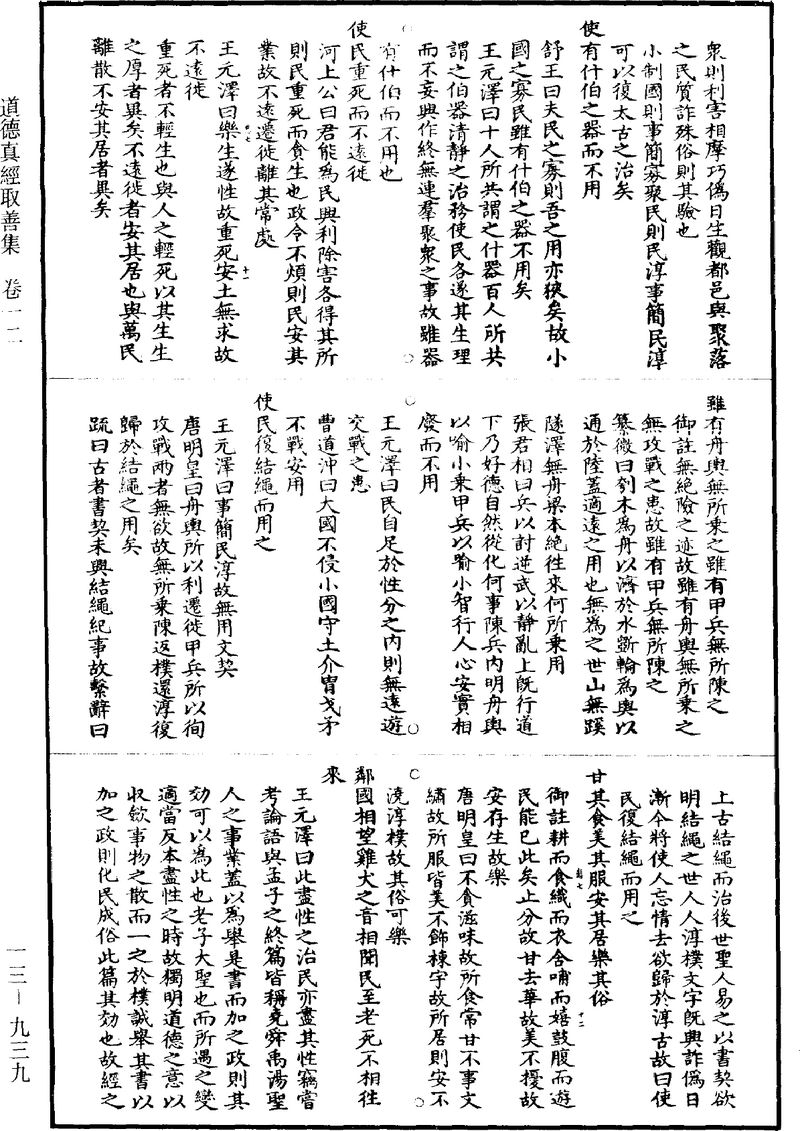 道德真經取善集　卷一二
一三－九三九
眾則利害相摩巧偽日生觀都邑與聚落
之民質詐殊俗則其驗也
小制國則事簡寡聚民則民淳事簡民淳
可以復太古之治矣
使有什伯之器而不用
舒王曰夫民之寡則吾之用亦狹矣故小
國之寡民雖有什伯之器不用矣
王元澤曰十人所共謂之什器百人所共
謂之伯器清靜之治務使民各遂其生理
而不妄興作終無連羣聚眾之事故雖器
有什伯而不用也
使民重死而不遠徙
河上公曰君能為民興利除害各得其所
則民重死而貪生也政令不煩則民安其
業故不遠遷徙離其常處
王元澤曰樂生遂性故重死安土無求故
不遠徙
重死者不輕生也與人之輕死以其生生
之厚者異矣不遠徙者安其居也與萬民
離散不安其居者異矣
十一
雖有舟輿無所乘之雖有甲兵無所陳之
御註無絕險之迹故雖有舟輿無所乘之
無攻戰之患故雖有甲兵無所陳之
纂微曰刳木為舟以濟於水斲輪為輿以
通於陸蓋適遠之用也無為之世山無蹊
隧澤無舟梁本絕往來何所乘用
張君相曰兵以討逆武以靜亂上既行道
下乃好德自然從化何事陳兵內明舟輿
以喻小乘甲兵以喻小智行人心安實相
廢而不用
王元澤曰民自足於性分之內則無遠遊
交戰之患
曹道沖曰大國不侵小國守土介冑戈矛
不戰安用
使民復結繩而用之
王元澤曰事簡民淳故無用文契
唐明皇曰舟輿所以利遷徙甲兵所以徇
攻戰兩者無欲故無所乘陳返樸還淳復
歸於結繩之用矣
疏曰古者書契未興結繩紀事故繫辭曰
上古結繩而治後世聖人易之以書契欲
明結繩之世人人淳樸文字既興詐偽日
漸今將使人忘情去欲歸於淳古故曰使
民復結繩而用之
甘其食美其服安其居樂其俗
十二
御註耕而食織而衣含哺而嬉鼓腹而遊
民能已此矣止分故甘去華故美不擾故
安存生故樂
唐明皇曰不貪滋味故所食常甘不事文
繡故所服皆美不飾棟宇故所居則安不
澆淳樸故其俗可樂
鄰國相望雞犬之音相聞民至老死不相往
來
王元澤曰此盡性之治民亦盡其性竊嘗
考論語與孟子之終篇皆稱堯舜禹湯聖
人之事業蓋以為舉是書而加之政則其
効可以為此也老子大聖也而所遇之變
適當反本盡性之時故獨明道德之意以
収斂事物之散而一之於樸誠舉其書以
加之政則化民成俗此篇其効也故經之